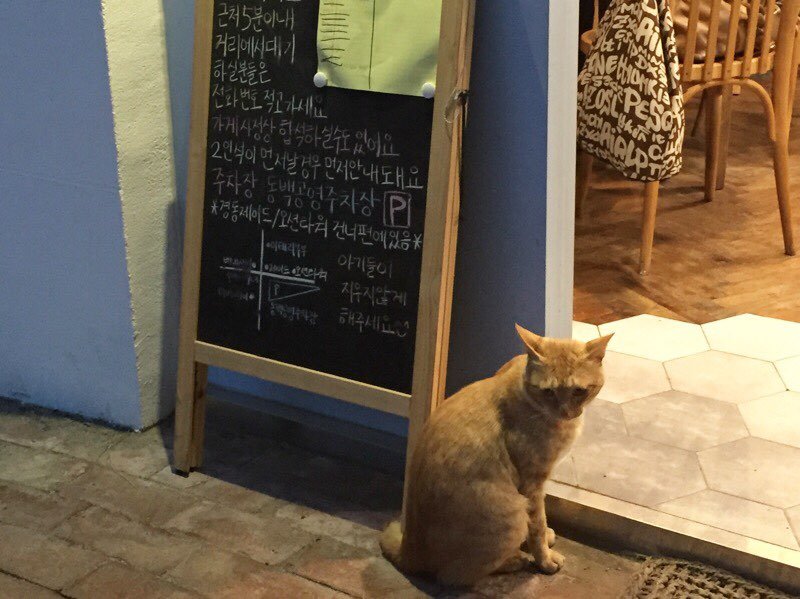 근처 5분이내
거리에서 대기
하실분들은
전화번호 적고가세요
가게 사정상 합석하실수도 있어요
2인석이 먼저날 경우 먼저안내돼요
주차장 동백공영주차장 P
*경동제이드/오션타워 건너편에있음*
아기들이
지우지않게
해주세요
P
동백공영주차장